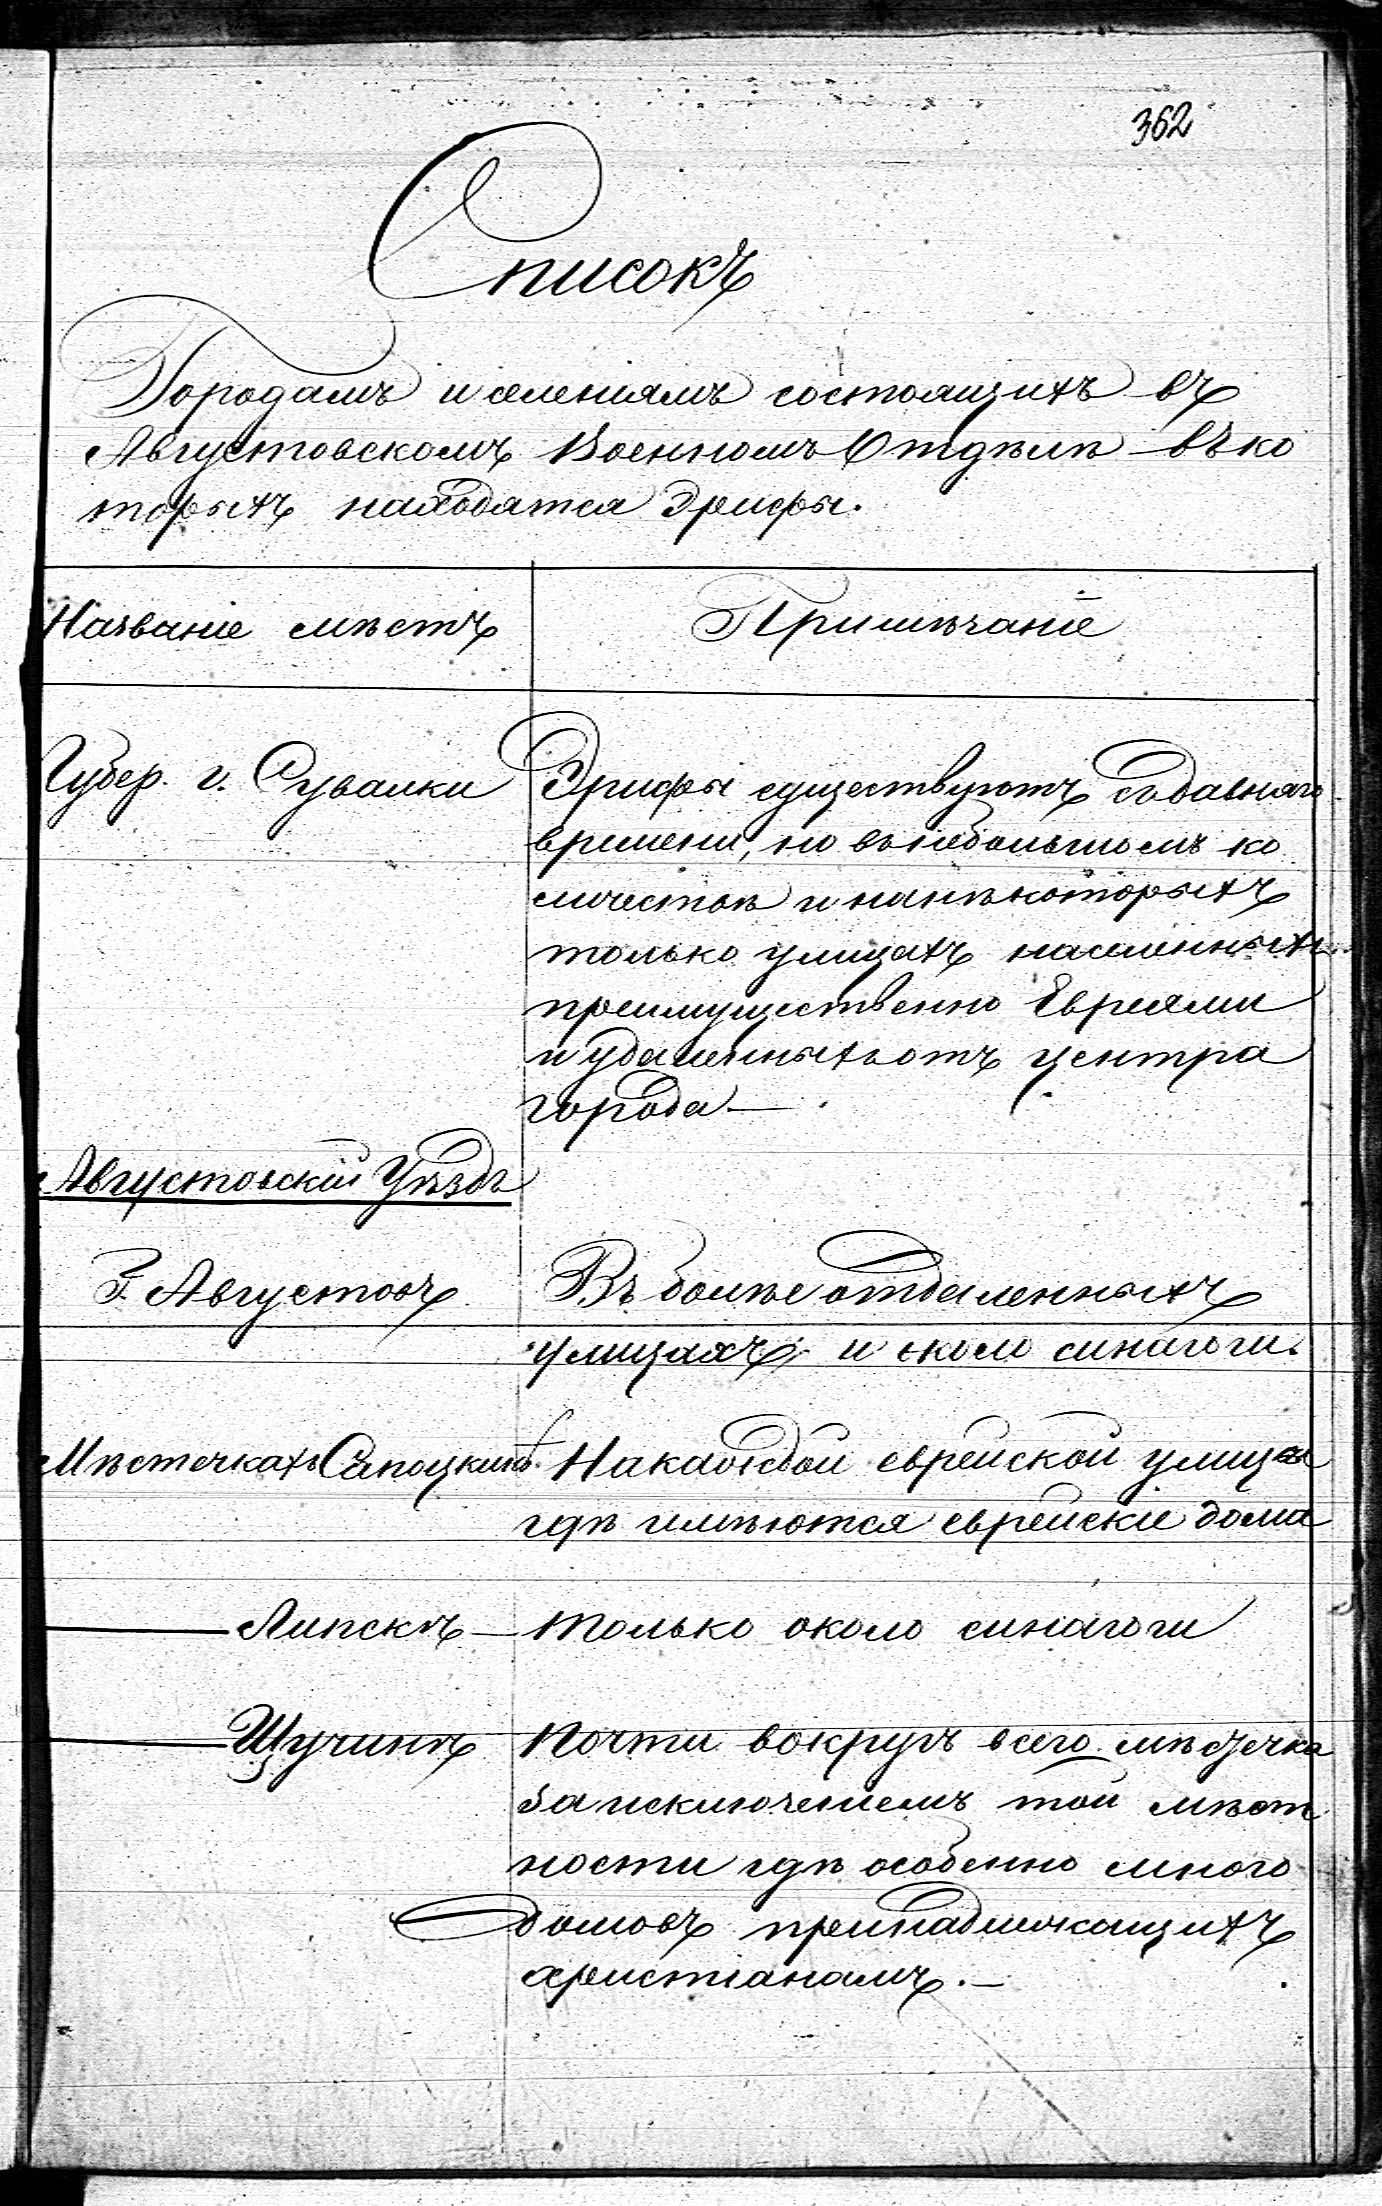 362
Списокъ
Городамъ и селеніямъ состоящихъ въ
Августовскомъ Военномъ Отдѣлѣ въ ко
торыхъ находятся Эрифы.
Названіе мѣстъ
Примѣчаніе
Губер. г. Сувалки
Эрифы существуютъ съ давняго
времени, но въ небольшомъ ко
личествѣ и на нѣкоторыхъ
только улицахъ населенныхъ
преимущественно Евреями
и удаленныхъ отъ центра
города —
Августовскій Уѣздъ
Г. Августовъ
Въ болѣе отдаленныхъ
улицахъ и около синагоги.
Мѣстечкахъ Сапоцкинѣ
На каждой еврейской улицѣ
гдѣ имѣются еврейскіе дома
— Липскъ —
только около синагоги
— Щучинъ
Почти вокругъ всего мѣстечка
за исключеніемъ той мѣст
ности гдѣ особенно много
домовъ пренадлежащихъ
христіанамъ. —